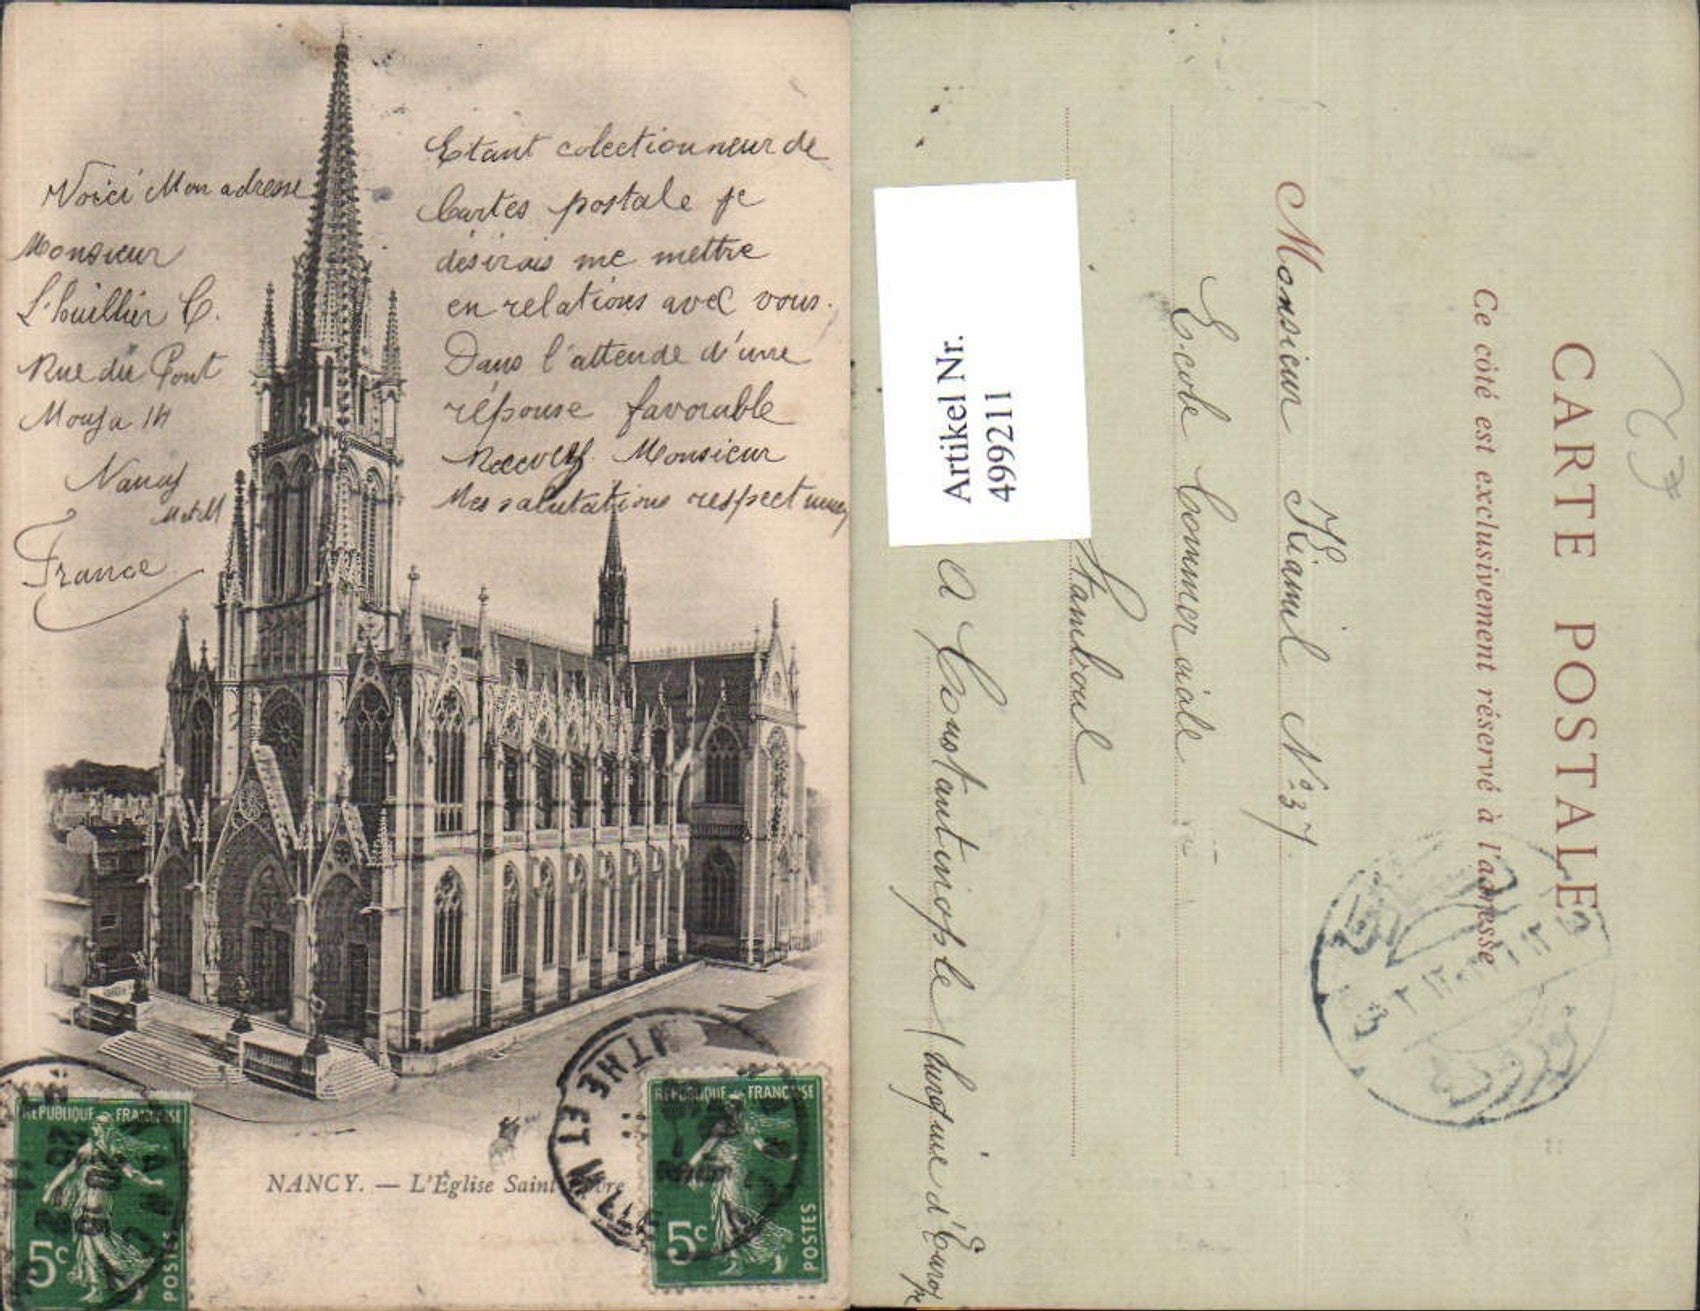 Voici Mon adresse
Monsieur
L'huillier C.
Rue du Pont
Mouja 14
Nancy
M et M
France
Etant colectionneur de
Cartes postale je
désirais me mettre
en relations avec vous.
Dans l'attende d'une
réponse favorable
Recevez Monsieur
Mes salutations respectueuses
NANCY. — L'Église Saint
RÉPUBLIQUE FRANÇAISE
5c
POSTES
RÉPUBLIQUE FRANÇAISE
5c
POSTES
NANCY
MRTHE ET M
CARTE POSTALE
Ce côté est exclusivement réservé à l'adresse
Monsieur Kiamil No 37.
Ecole Commerciale
Stamboul
a Constantinople (Turquie d'Europe
Artikel Nr.
499211